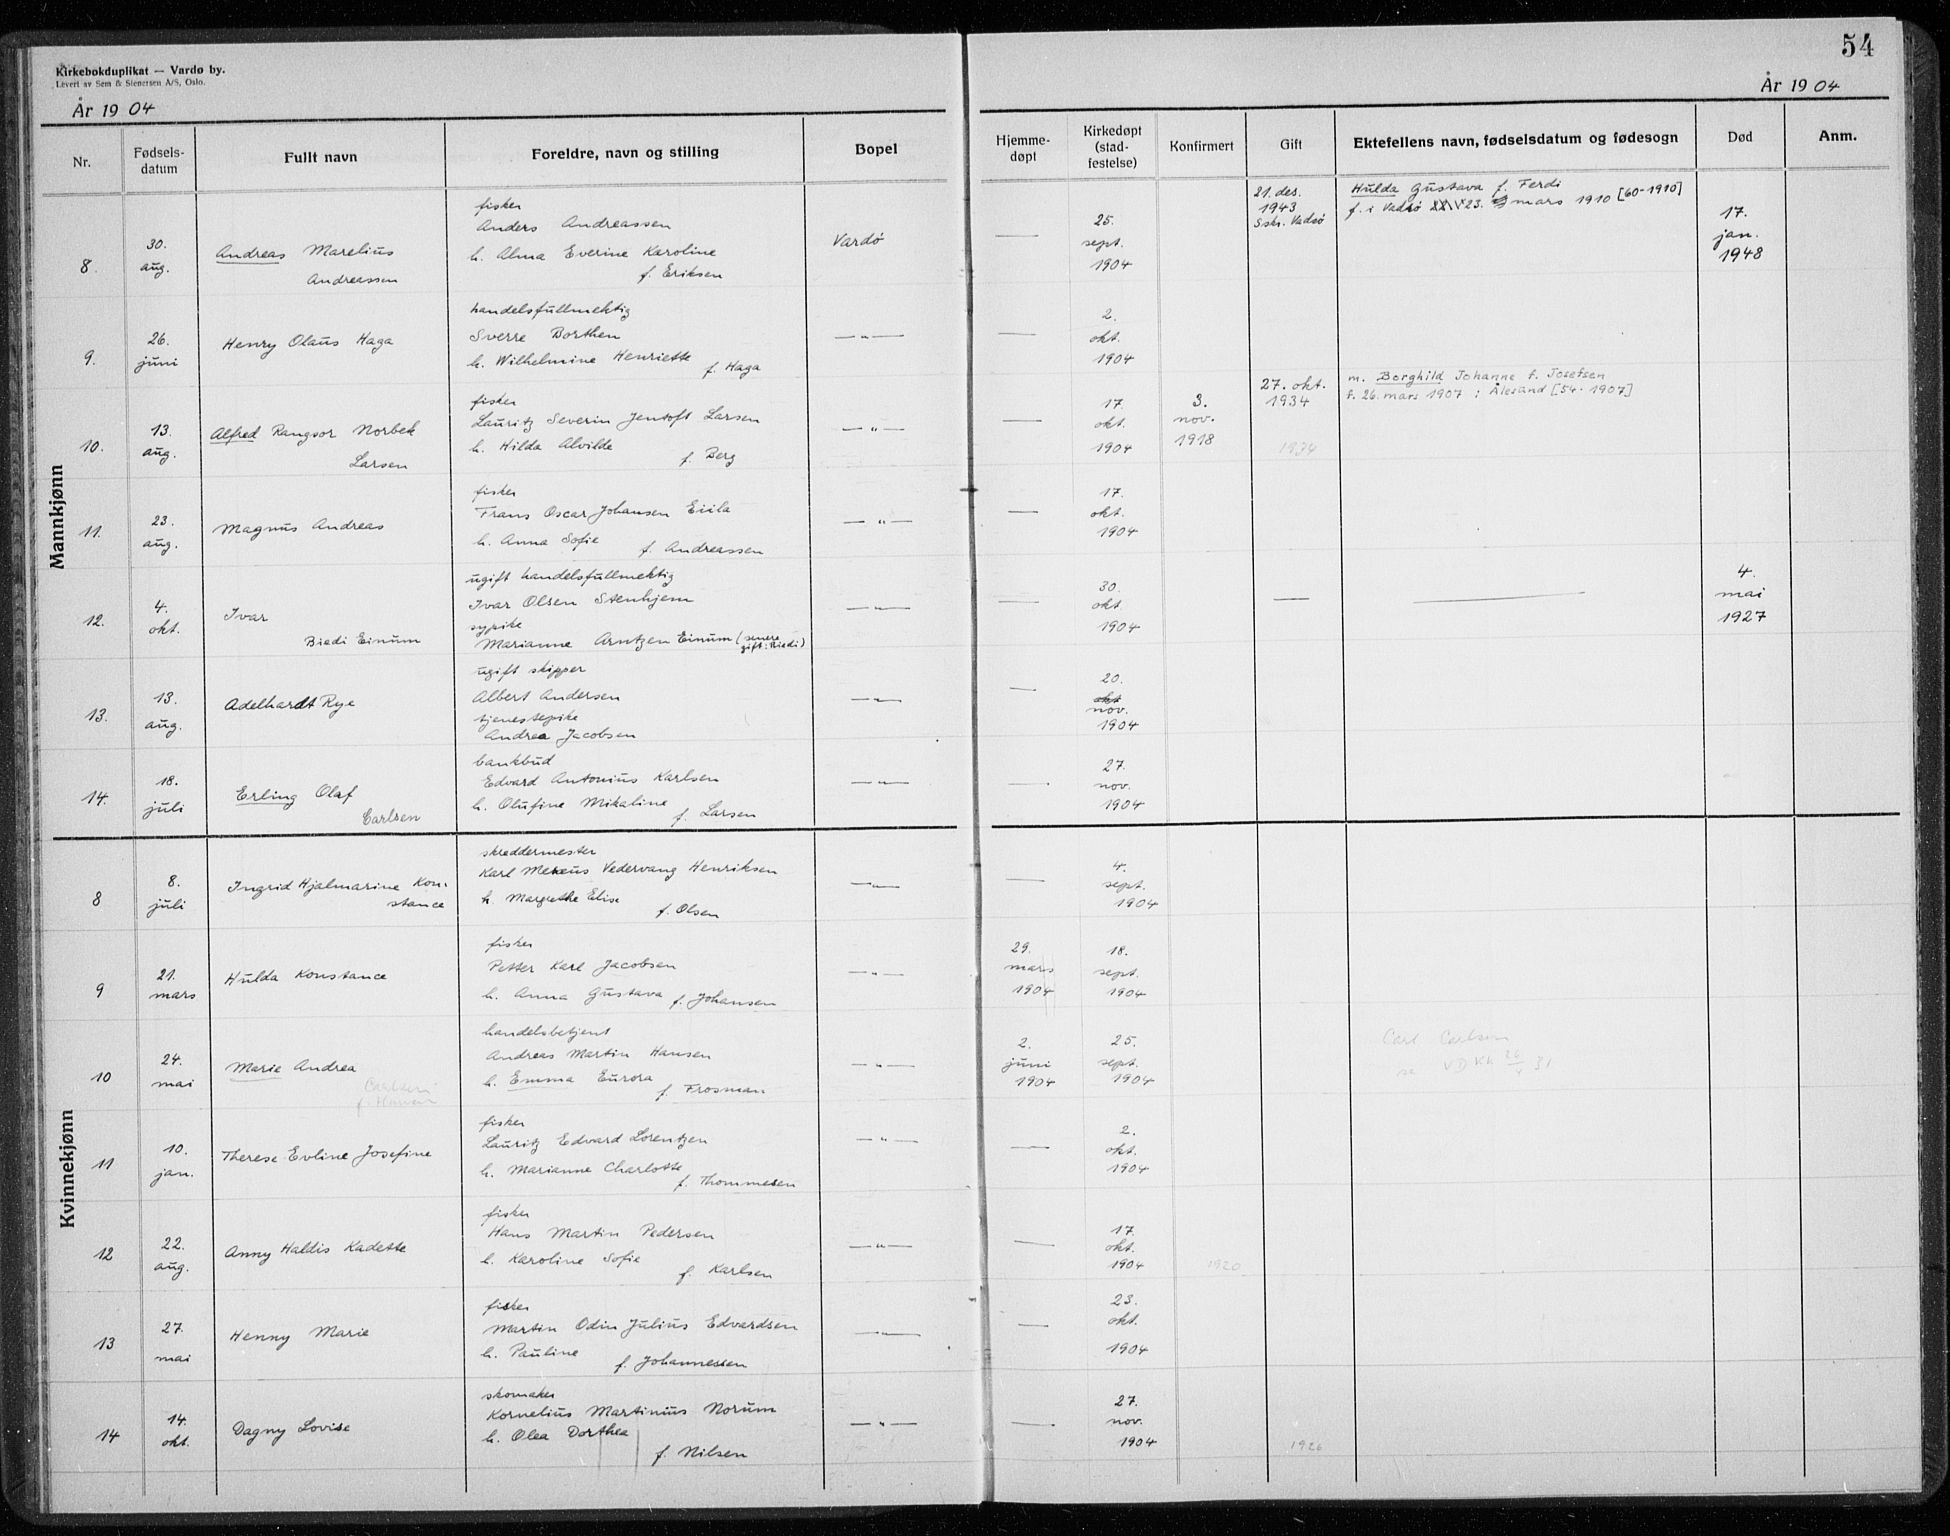 54
Kirkebokduplikat — Vardø by.
Levert av Sem & Stenersen A/S, Oslo.
År 1904
År 1904
Nr. Fødsels-datum Fullt navn Foreldre, navn og stilling Bopel Hjemme-døpt Kirkedøpt (stad-festelse) Konfirmert Gift Ektefellens navn, fødselsdatum og fødesogn Død Anm.
Mannkjønn
fisker 21. des. Hulda Gustava f. Ferdi
Anders Andreassen 25. 1943 f. i Vadsø 23. mars 1910 [60-1910] 17.
30. Andreas Marelius h. Alma Everine Karoline Vardø — sept. S.skr. Vadsø jan.
8. aug. Andreassen f. Eriksen 1904 1948
handelsfullmektig 2.
26. Henry Olaus Haga Sverre Borthen —„— — okt.
9. juni h. Wilhelmine Henriette f. Haga 1904
fisker 27. okt. m. Borghild Johanne f. Josefsen
13. Alfred Rangsor Norbek Lauritz Severin Jentoft Larsen —„— — 17. 3. 1934 f. 26. mars 1907 i Ålesund [54-1907]
10. aug. Larsen h. Hilda Alvilde okt. nov.
f. Berg 1904 1918 1934
fisker 17.
23. Magnus Andreas Frans Oscar Johansen Eiila —„— — okt.
11. aug. h. Anna Sofie f. Andreassen 1904
ugift handelsfullmektig 30. 4.
4. Ivar Ivar Olsen Stenhjem —„— — okt. — — mai
12. okt. Biedi Einum sypike 1904 1927
Marianne Arntzen Einum (senere gift: Biedi)
ugift skipper 20.
13. Adelhardt Rye Albert Andersen —„— — okt
13. aug. tjenestepike nov.
Andrea Jacobsen 1904
bankbud 27.
18. Erling Olaf Edvard Antonius Karlsen —„— — nov.
14. juli Carlsen h. Olufine Mikaline f. Larsen 1904
Kvinnekjønn
skreddermester 4.
8. Ingrid Hjalmarine Kon- Karl Vedervang Henriksen —„— — sept.
8 juli stance h. Margrethe Elise f. Olsen 1904
fisker 29. 18.
21. Hulda Konstance Petter Karl Jacobsen —„— mars sept.
9 mars h. Anna Gustava f. Johansen 1904 1904
handelsbetjent 2. 25. Carl Carlsen
24. Marie Andrea Andreas Martin Hansen —„— juni sept. se VD Kk 31
10 mai Carlsen h. Emma Eurora f. Frosman 1904 1904
f. Hansen
fisker 2.
10. Therese Evline Josefine Lauritz Edvard Lorentzen —„— — okt.
11 jan. h. Marianne Charlotte f. Thommesen 1904
fisker 17.
22. Anny Haldis Kadette Hans Martin Pedersen —„— — okt.
12 aug. h. Karoline Sofie f. Karlsen 1904 1920
fisker 23.
27. Henny Marie Martin Odin Julius Edvardsen —„— — okt.
13 mai h. Pauline f. Johannessen 1904
skomaker 27.
14. Dagny Lovise Kornelius Martinius Norum —„— — nov.
14 okt. h. Olea Dorthea f. Nilsen 1904 1926